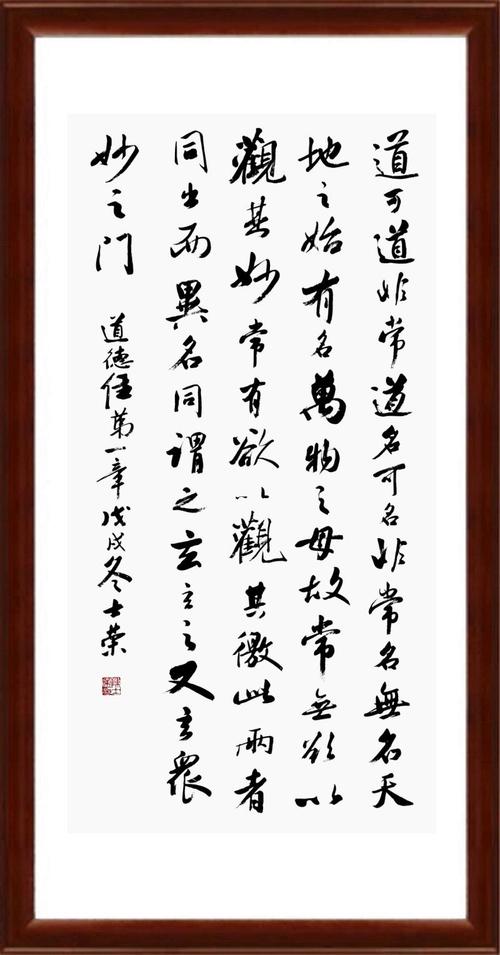 道可道非常道名可名非常名無名天
地之始有名萬物之母故常無欲以
觀其妙常有欲以觀其徼此兩者
同出而異名同謂之玄玄之又玄眾
妙之門
道德經第一章戊戌冬士榮